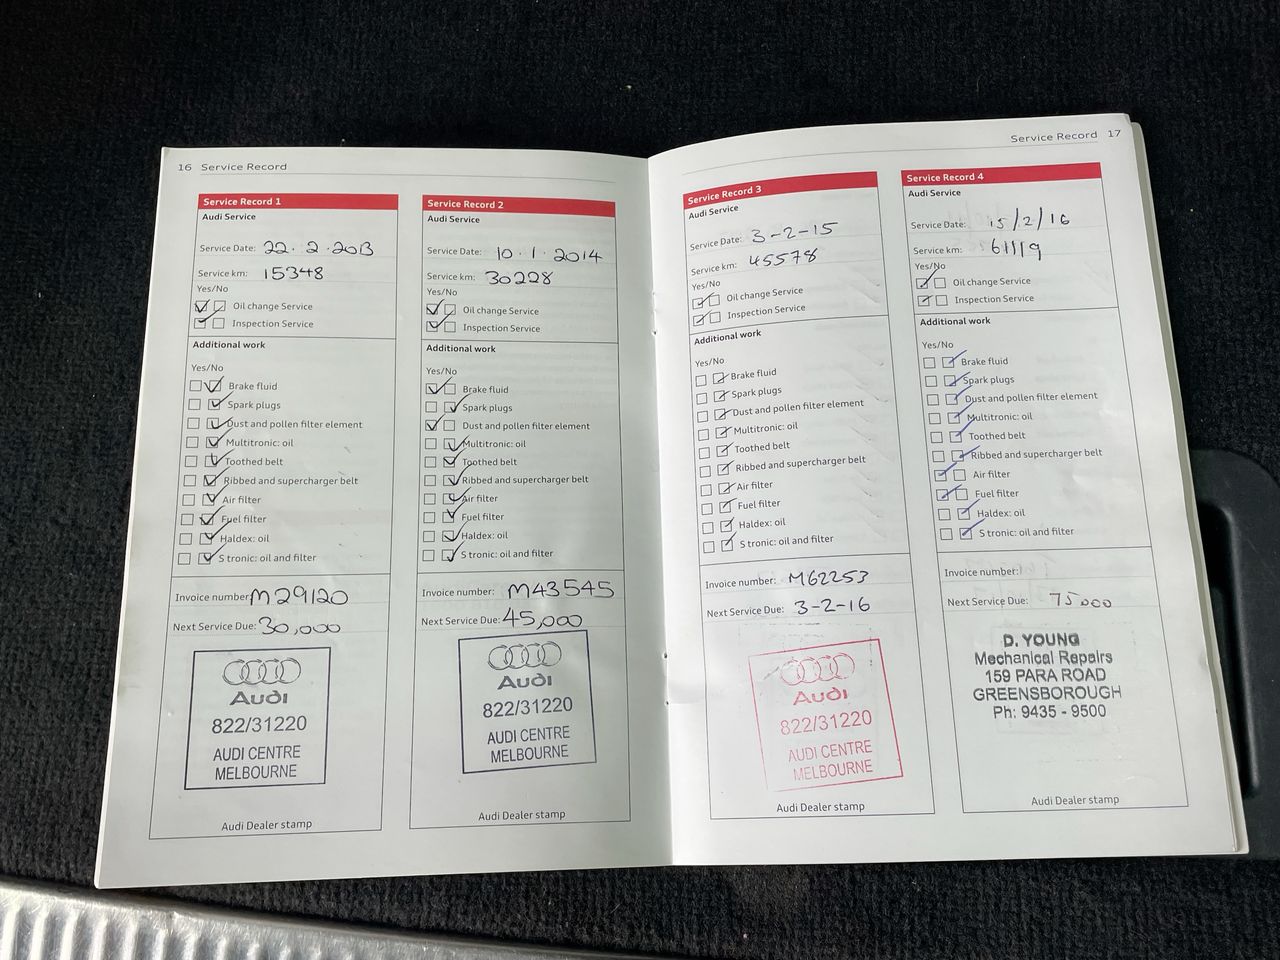 16 Service Record
Service Record 1
Audi Service
Service Date: 22.2.2013
Service km: 15348
Yes/No
Oil change Service
Inspection Service
Additional work
Yes/No
Brake fluid
Spark plugs
Dust and pollen filter element
Multitronic: oil
Toothed belt
Ribbed and supercharger belt
Air filter
Fuel filter
Haldex: oil
S tronic: oil and filter
Invoice number: M29120
Next Service Due: 30,000
Audi
822/31220
AUDI CENTRE
MELBOURNE
Audi Dealer stamp
Service Record 2
Audi Service
Service Date: 10.1.2014
Service km: 30228
Yes/No
Oil change Service
Inspection Service
Additional work
Yes/No
Brake fluid
Spark plugs
Dust and pollen filter element
Multitronic: oil
Toothed belt
Ribbed and supercharger belt
Air filter
Fuel filter
Haldex: oil
S tronic: oil and filter
Invoice number: M43545
Next Service Due: 45,000
Audi
822/31220
AUDI CENTRE
MELBOURNE
Audi Dealer stamp
Service Record 17
Service Record 3
Audi Service
Service Date: 3-2-15
Service km: 45578
Yes/No
Oil change Service
Inspection Service
Additional work
Yes/No
Brake fluid
Spark plugs
Dust and pollen filter element
Multitronic: oil
Toothed belt
Ribbed and supercharger belt
Air filter
Fuel filter
Haldex: oil
S tronic: oil and filter
Invoice number: M62253
Next Service Due: 3-2-16
Audi
822/31220
AUDI CENTRE
MELBOURNE
Audi Dealer stamp
Service Record 4
Audi Service
Service Date: 15/2/16
Service km: 61119
Yes/No
Oil change Service
Inspection Service
Additional work
Yes/No
Brake fluid
Spark plugs
Dust and pollen filter element
Multitronic: oil
Toothed belt
Ribbed and supercharger belt
Air filter
Fuel filter
Haldex: oil
S tronic: oil and filter
Invoice number:
Next Service Due: 75,000
D. YOUNG
Mechanical Repairs
159 PARA ROAD
GREENSBOROUGH
Ph: 9435 - 9500
Audi Dealer stamp